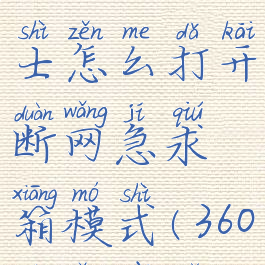 shì zěn me dǎ kāi
士怎么打开
duàn wǎng jí qiú
断网急求
xiāng mó shì
箱模式(360